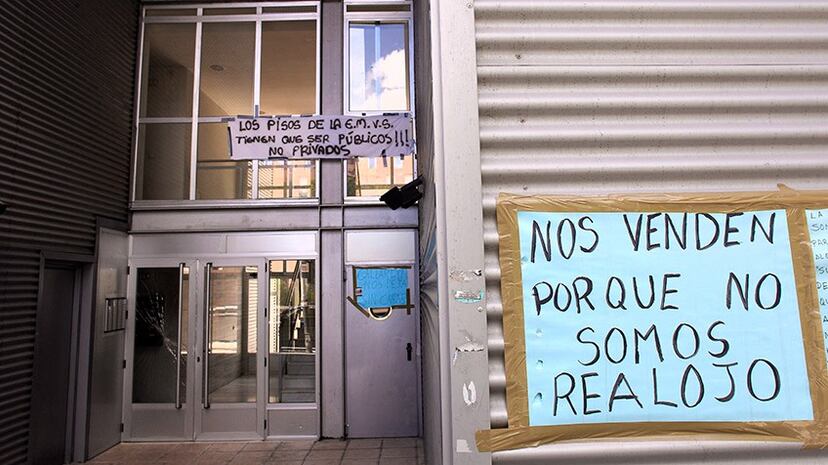 LOS PISOS DE LA E.M.V.S.
TIENEN QUE SER PÚBLICOS!!!
NO PRIVADOS
NOS VENDEN
PORQUE NO
SOMOS
REALOJO
NOS
LA